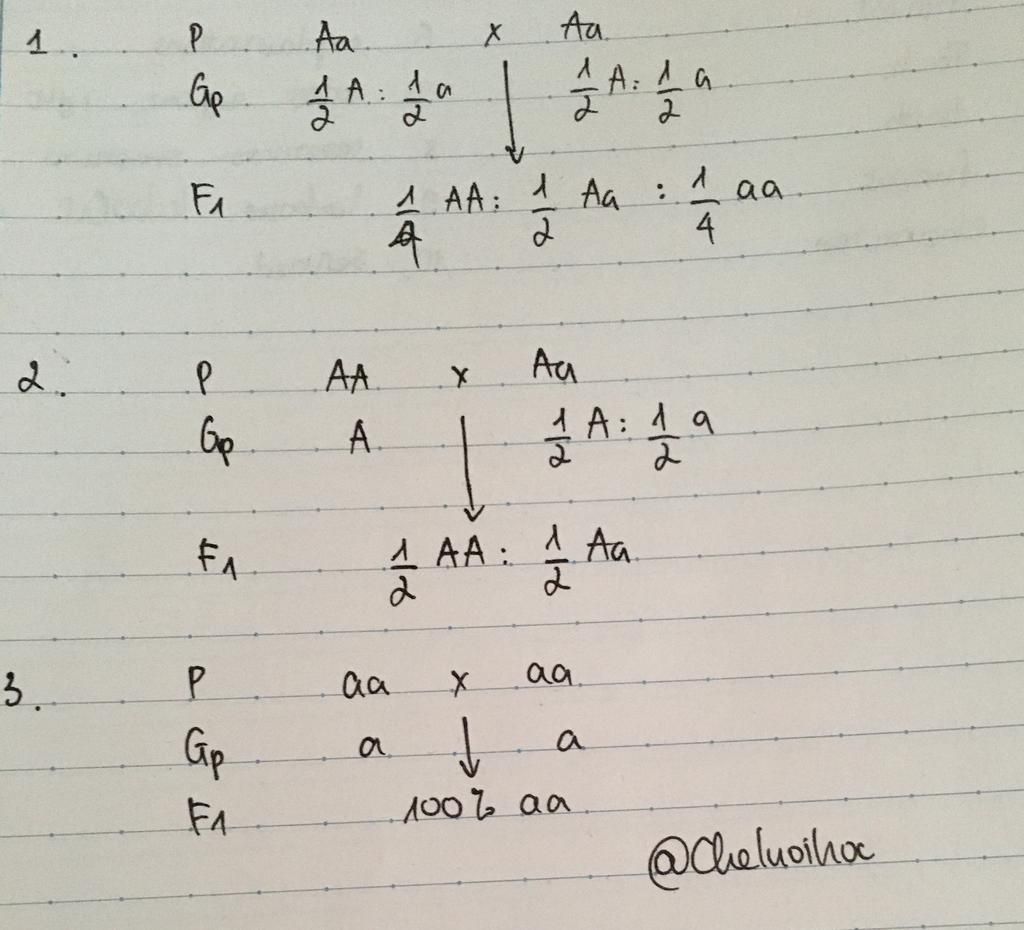 1. P Aa x Aa
Gp 1/2 A : 1/2 a 1/2 A : 1/2 a
F1 1/4 AA : 1/2 Aa : 1/4 aa
2. P AA x Aa
Gp A 1/2 A : 1/2 a
F1 1/2 AA : 1/2 Aa
3. P aa x aa
Gp a a
F1 100% aa
@Cheluoihoc